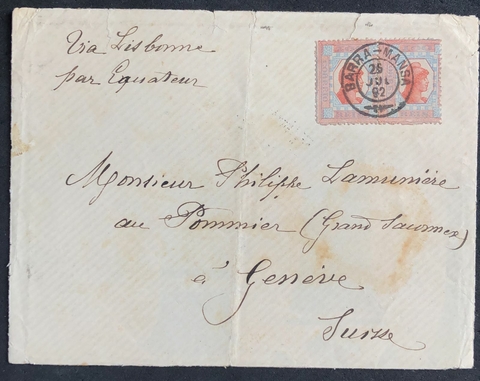 Via Lisbonne
par Equateur
BARRA-MANSA
26
JUL
92
REIS
Monsieur Philippe Lamunière
au Pommier (Grand Saconnex)
à Genève
Suisse